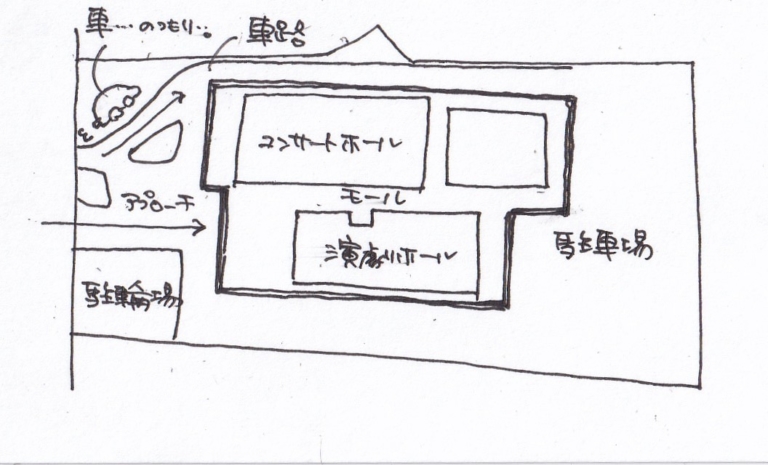 車…のつもり。
車路
コンサートホール
モール
アプローチ
演劇ホール
駐車場
駐輪場